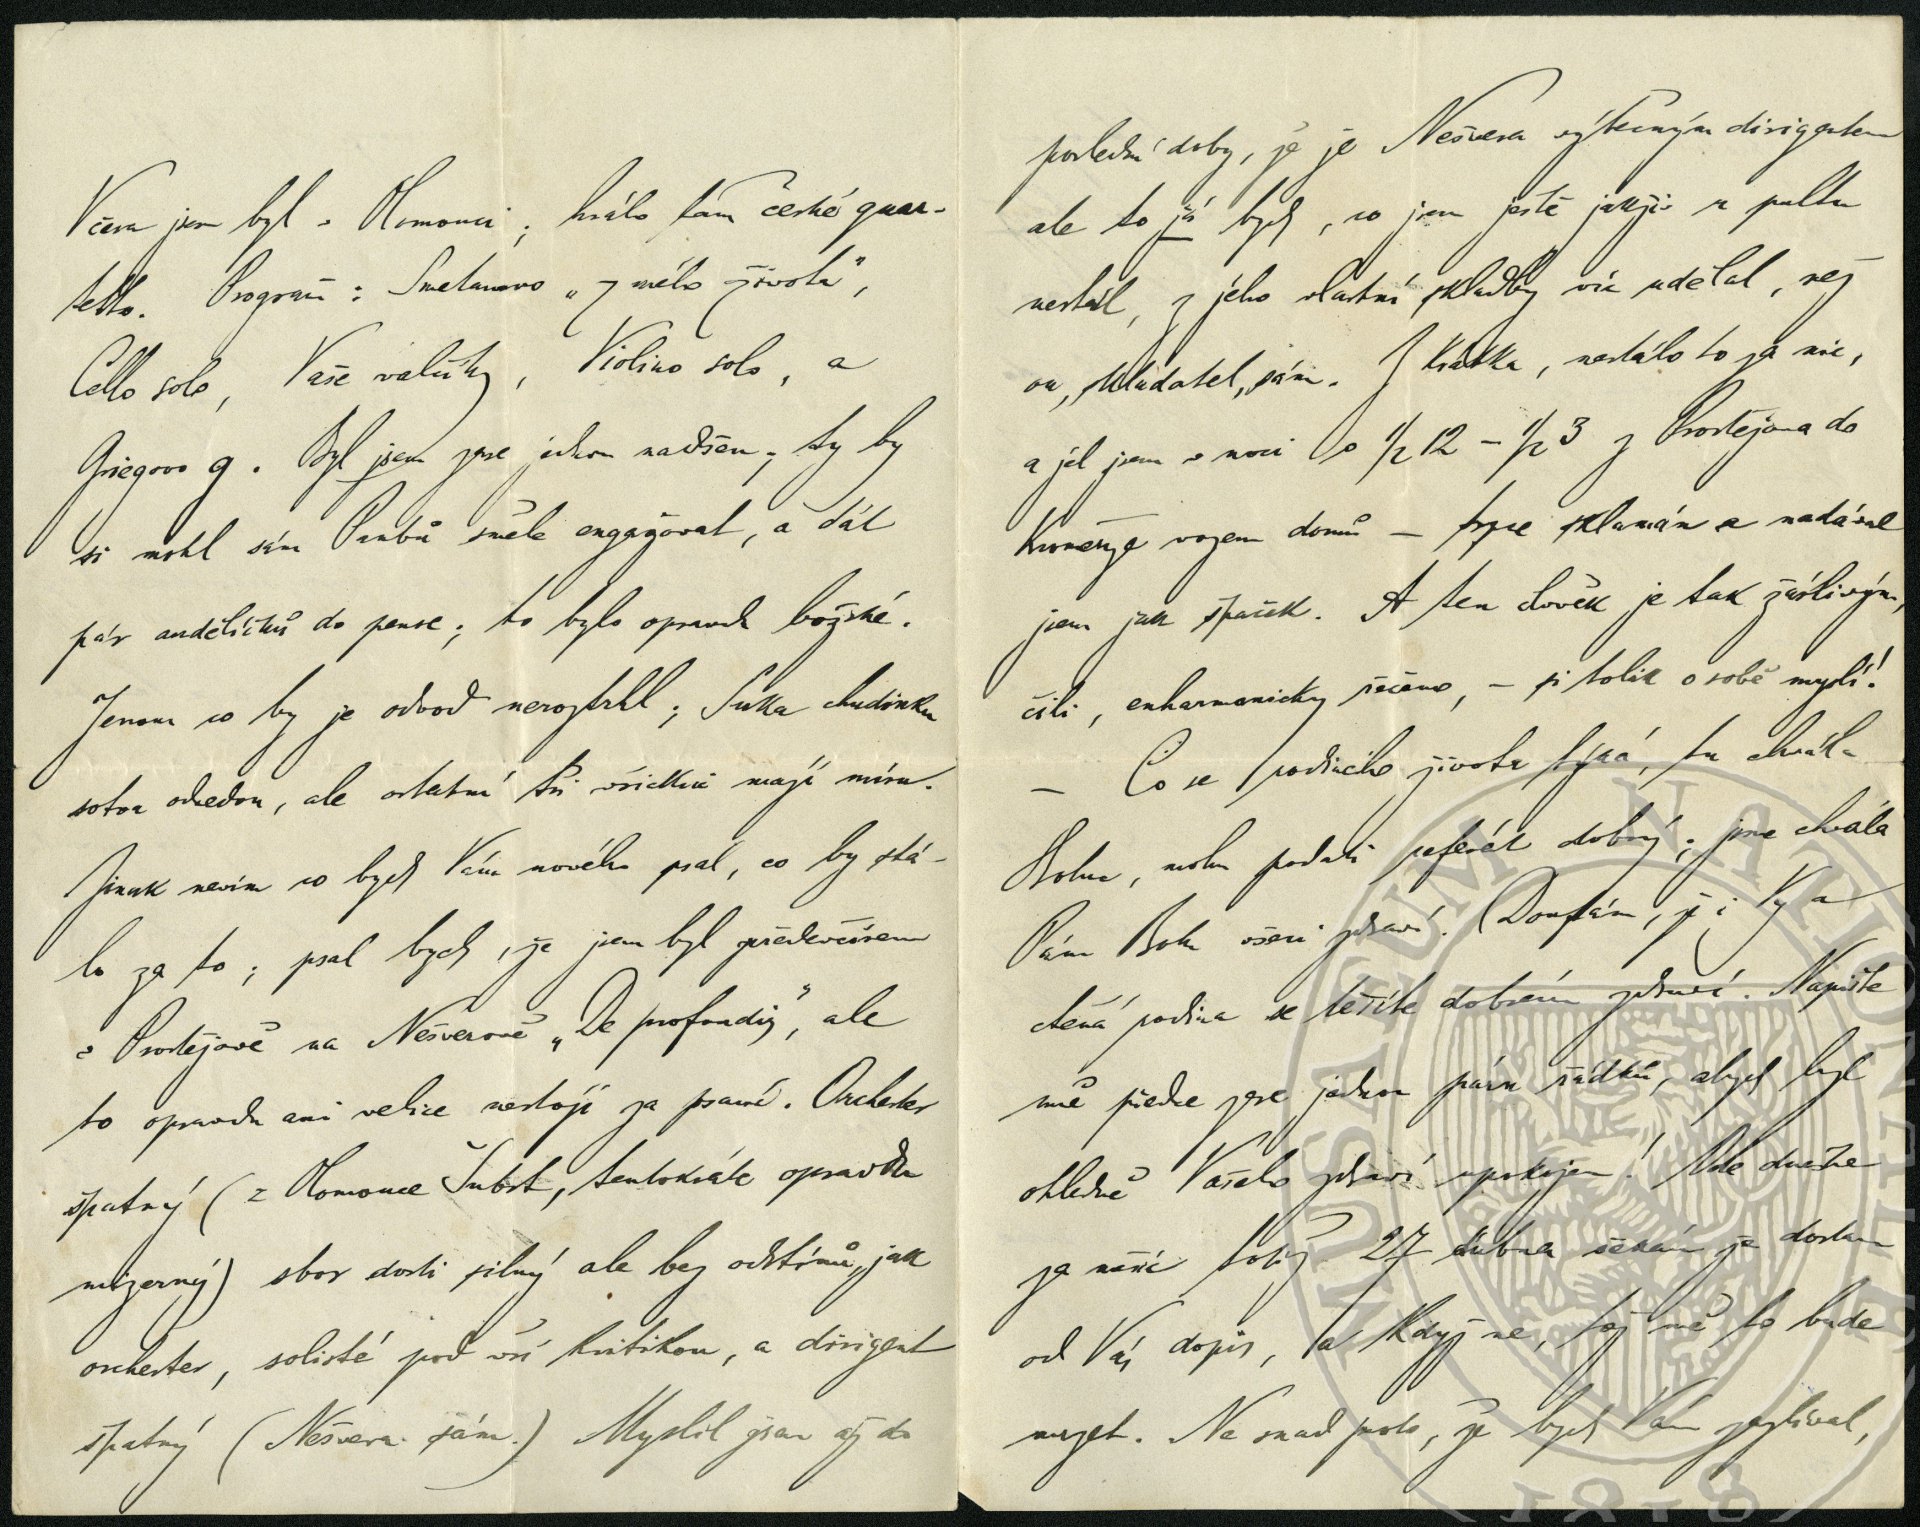 Včera jsem byl v Olomouci; hrálo tam České quar-
tetto. Program: Smetanovo „z mého života",
Cello solo, Vaše valčíky, Violino solo, a
Griegovo g. Byl jsem zase jednou nadšen; ty by
si mohl sám Pánbů směle engagžovat, a dát
pár andělíčků do pense; to bylo opravdu božské.
Jenom co by je odvod neroztrhl; Suka chudinku
sotva odvedou, ale ostatní tři všickni mají míru.
Jinak nevím co bych Vám nového psal, co by stá-
lo za to; psal bych, že jsem byl předevčírem
v Prostějově na Nešverově „De profundis", ale
to opravdu ani velice nestojí za psaní. Orchester
špatný (z Olomouce Šubrt, tentokráte opravdu
mizerný) sbor dosti silný ale bez odstínů, jak
orchester, solisté pod vší kritikou, a dirigent
špatný (Nešvera sám.) Myslil jsem až do
poslední doby, že je Nešvera výtečným dirigentem
ale to já bych, co jsem ještě jakživ u pultu
nestál, z jeho vlastní skladby víc udělal, než
on, skladatel, sám. Z krátka, nestálo to za nic,
a jel jsem v noci o ½ 12 – ½ 3 z Prostějova do
Kroměříže vozem domů – trpce sklamán a nadával
jsem jak špaček. A ten člověk je tak žárlivým,
čili, enharmonicky řečeno, – si tolik o sobě myslí!
– Co se rodinného života týká, tu chvála
Bohu, mohu podati referát dobrý; jsme chvála
Pánu Bohu všeci zdraví. Doufám, že i Vy a
ctená rodina se těšíte dobrém zdraví. Napište
mě předce zase jednou páru řádků, abych byl
ohledně Vašeho zdraví upokojen! Ode dneška
za měsíc totiž 27 dubna čekám že dostanu
od Vás dopis, a když ne, tož mě to bude
mrzet. Ne snad proto, že bych Vám zazlíval,
MUSAEUM NATIONALE
1818